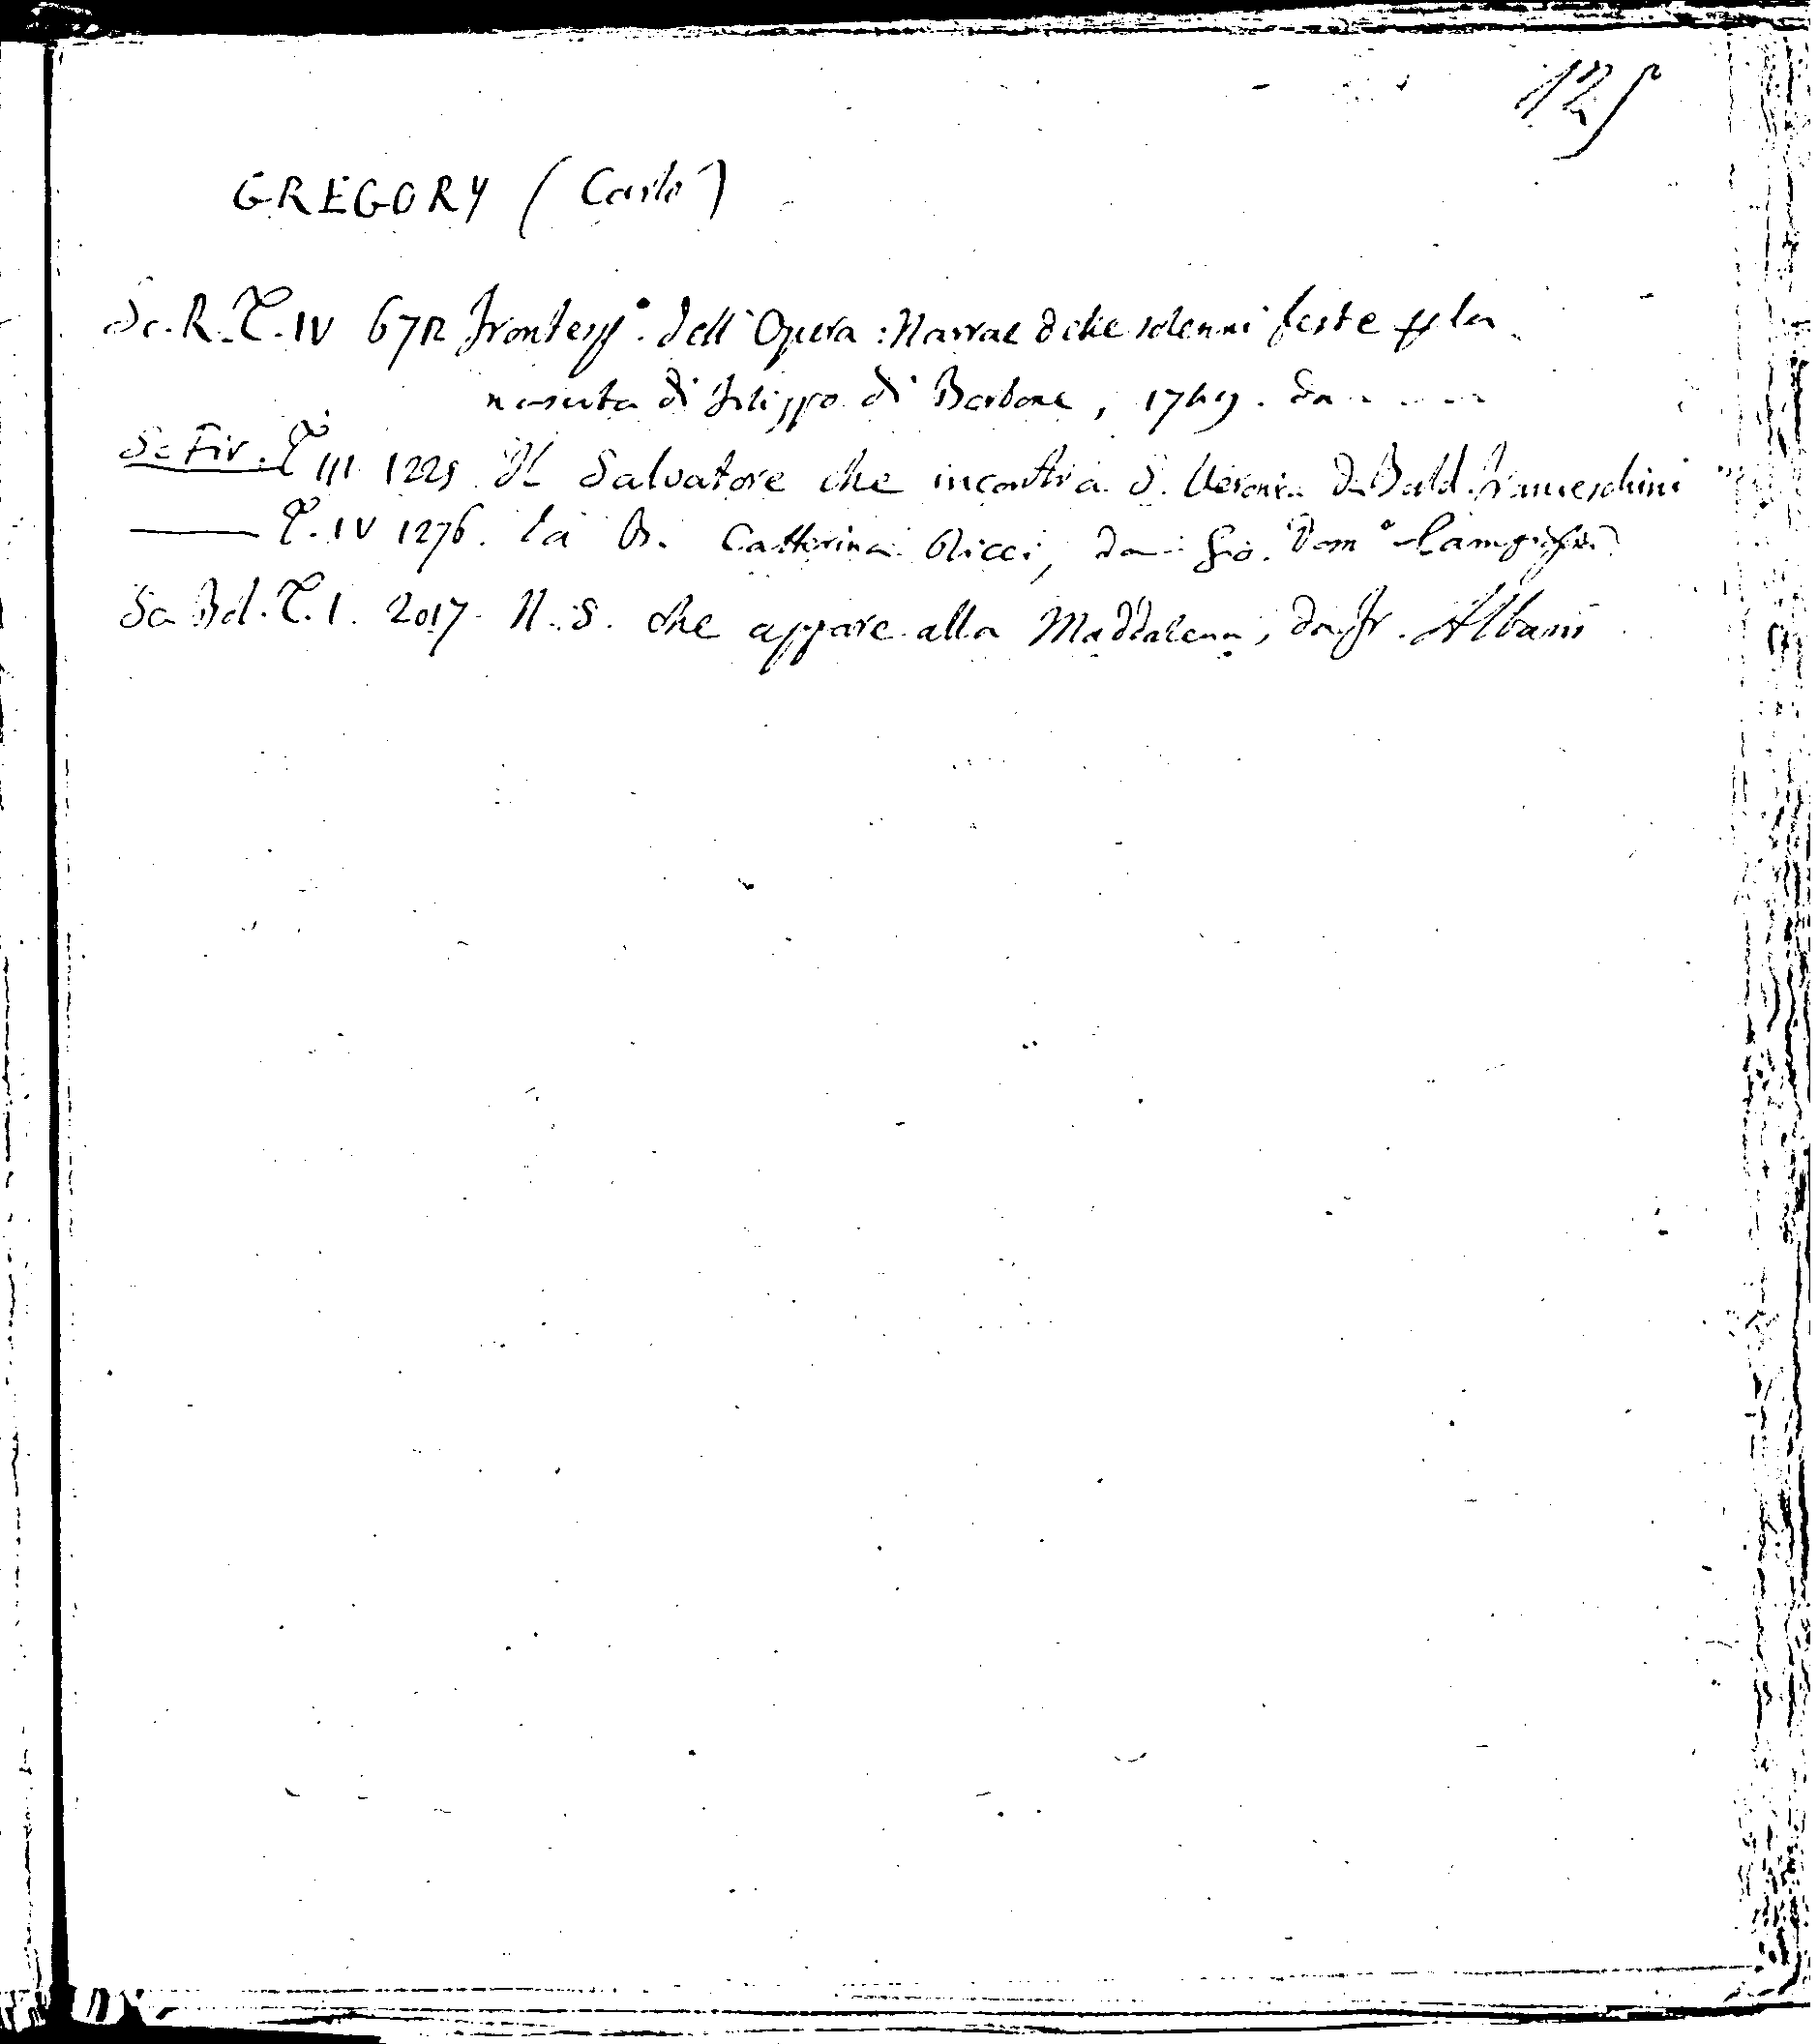 125
GREGORY (Carlo)
Sc. R. T. IV 672 frontesp°. dell' Opera: Narrae delle solenni feste p la
nascita di Filippo di Borbone, 1749. da . . . .
Sc Fir. T III 1225 Il Salvatore che incontra S. Veronica da Bald. Franceschini
T. IV 1276. la B. Catterina Ricci, da Gio. Dom°
Sc Bol. T. I. 2017. N. S. che appare alla Maddalena, da Fr. Albani